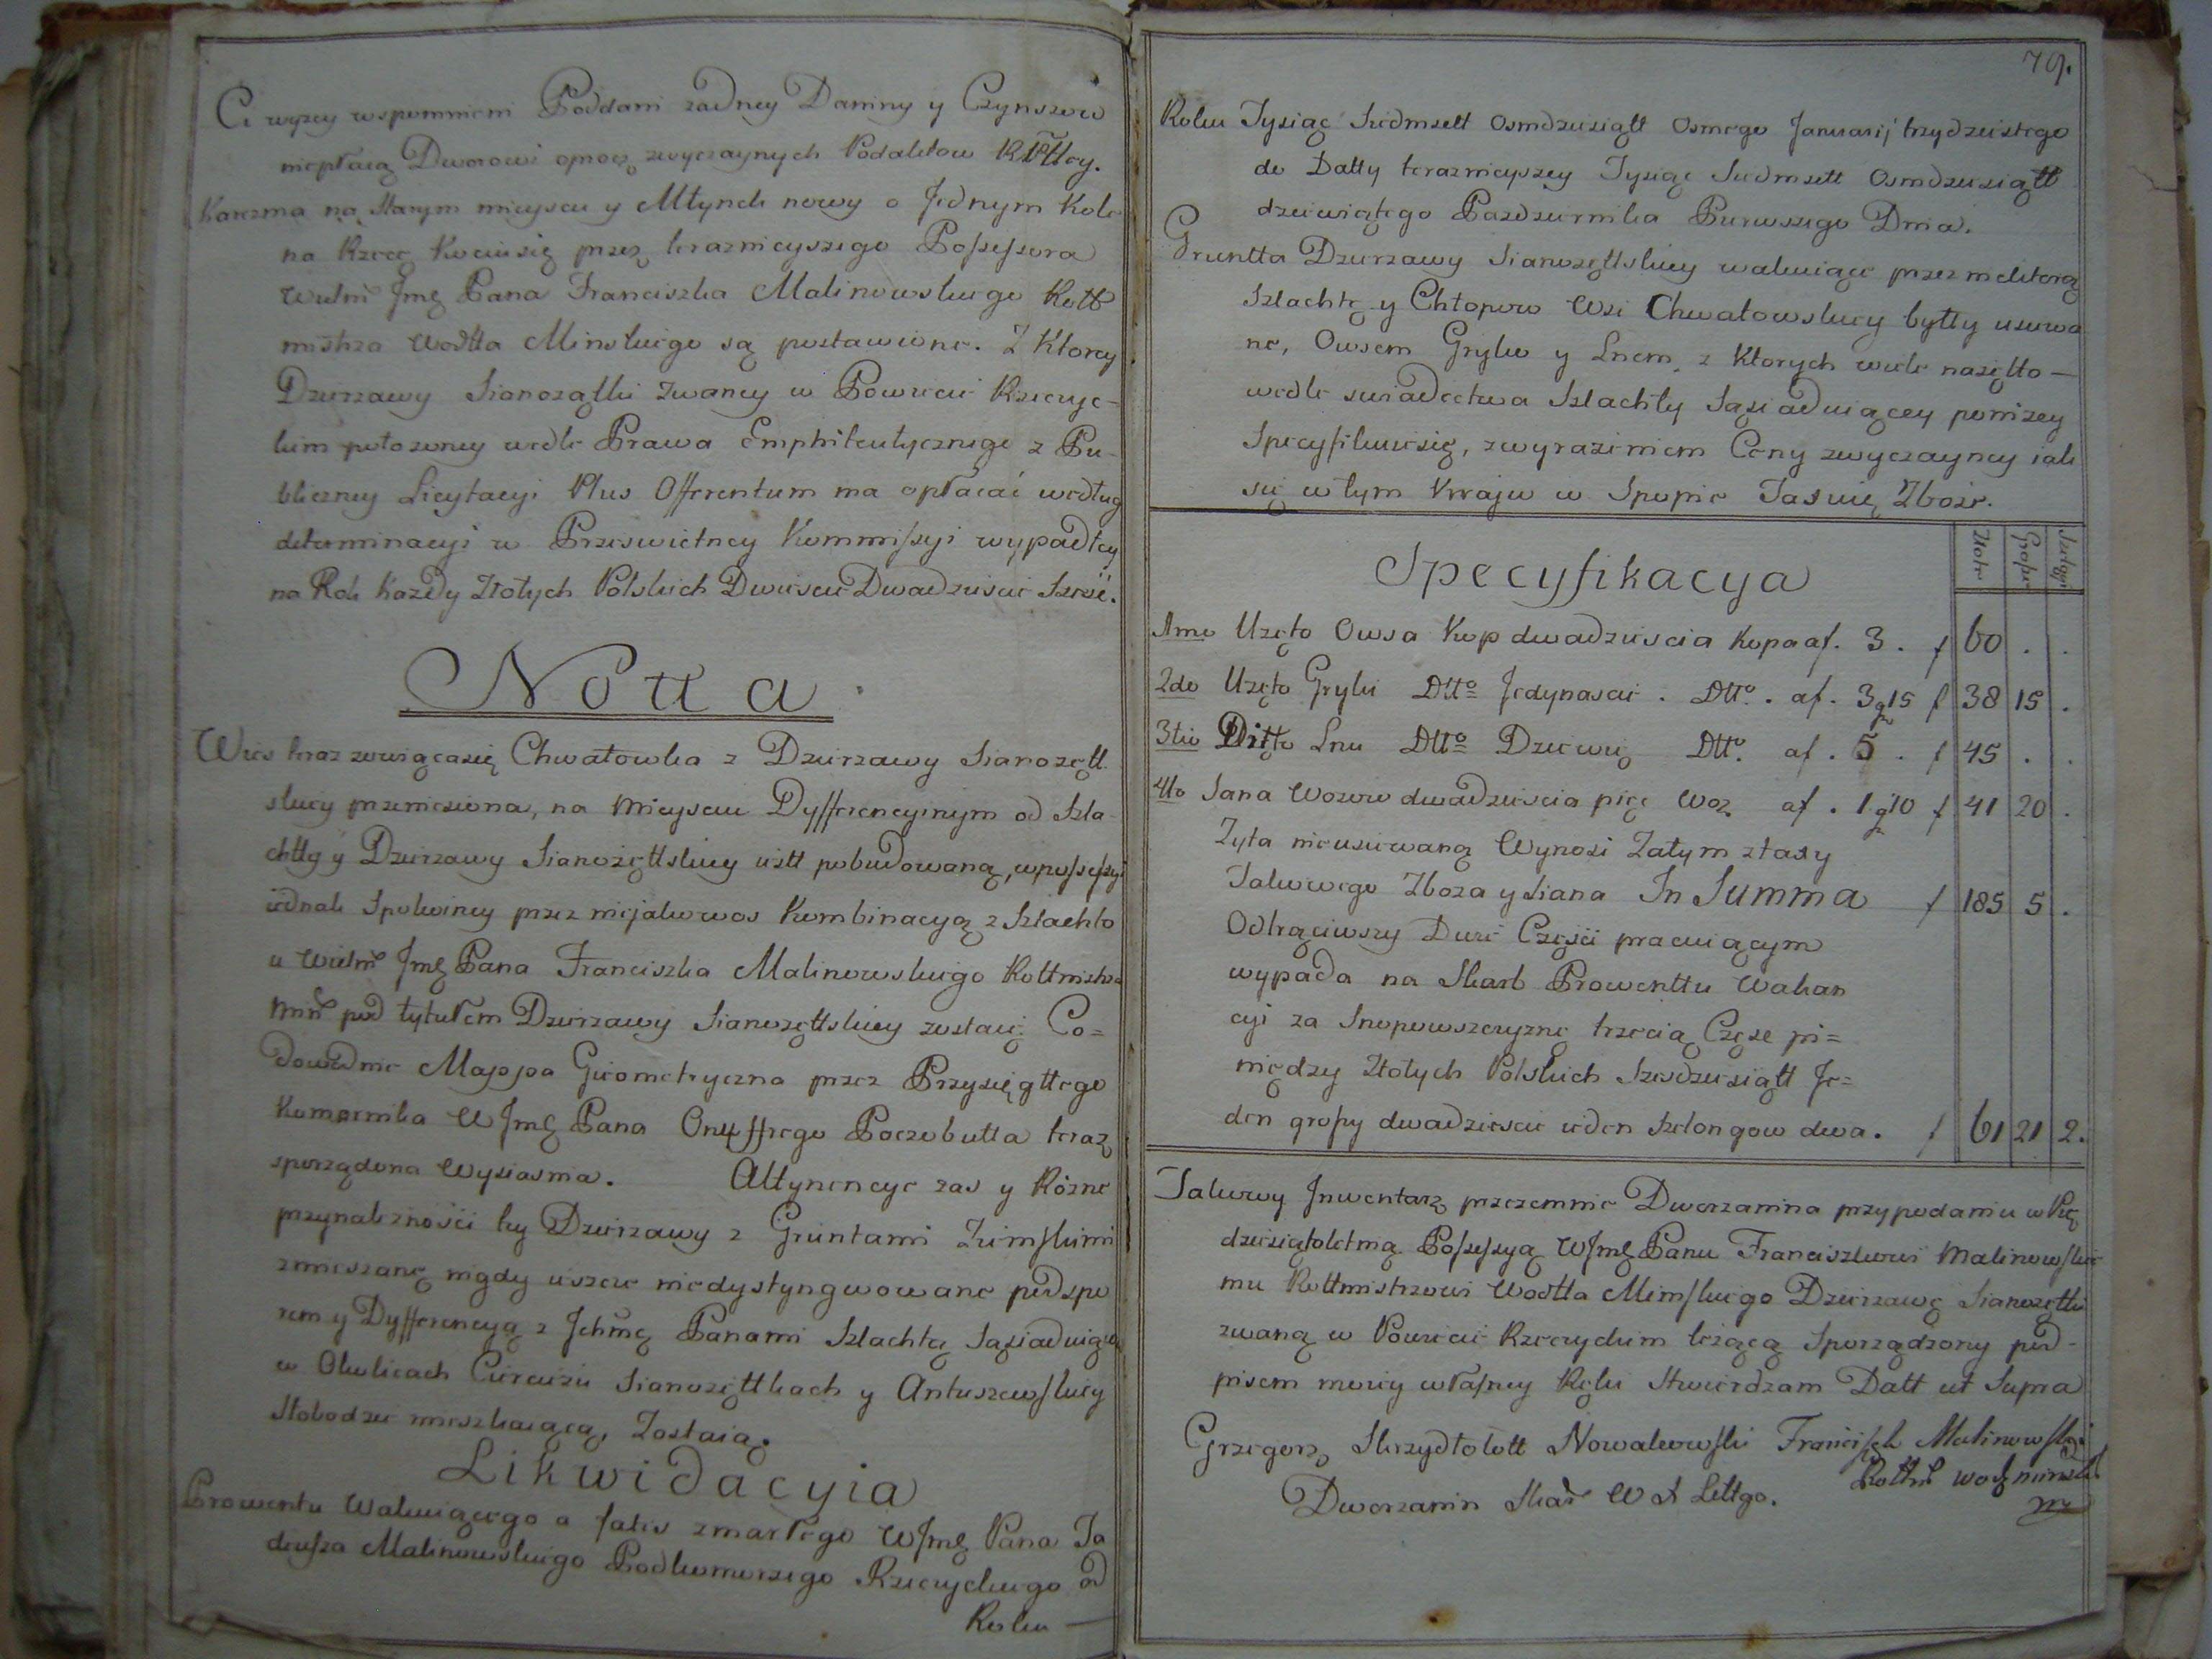 Ci wyżey wspomnieni Poddani żadney Daniny y Czynszów
niepłacą Dworowi oprocz zwyczaynych Podatkow RPttey.
Karczma na starym mieyscu y Młynek nowy o Jednym Kole
na Rzece Kociusię przez teraznieyszego Possessora
Wielm Jmę Pana Franciszka Malinowskiego Rott
mistrza Wodtta Minskiego są postawione. Z Ktorey
Dzierzawy Sianozątki zwaney w Powiecie Rzeczyc-
kim położoney wedle Prawa Emphiteutycznego z Pu-
bliczney Licytacyi Plus Offerentum ma opłacać według
determinacyi w Przeswietney Kommissyi wypadłey
na Rok każdy Złotych Polskich Dwiescie Dwadziescie Szesć.
Notta
Wies teraz zowiącasię Chwatowka z Dzierzawy Sianożętt
skiey przeniesiona, na Mieyscu Dyfferencyinym od Szla-
chttą y Dzierzawy Sianożęttskiey iestt pobudowaną, w possessyi
iednak Spolwiney przez niejakowoś Kombinacyą z Szlachto
u Wielm Jmę Pana Franciszka Malinowskiego Rottmistrza
Miń pod tytułem Dzierzawy Sianożęttskiey zostaię. Co=
dowodnie Mappa Gieometryczna przez Przysięgttego
Komornika WJmę Pana Onyffrego Poczobutta teraz
sporządona Wyiasnia. Attynencye zas y Rózne
przynalezności tey Dzierzawy z Gruntami Ziemskiemi
zmieszane nigdy ieszcze niedystyngwowane pod spo
rem y Dyfferencyą z Ichmę Panami Szlachtą Sąsiaduiącą
w Okolicach Cierciżu Sianożęttkach y Antuszewskiey
Słobodzie mieszkaiącą, Zostaią.
Likwidacyia
Prowentu Wakuiącego a fatis zmarłego WJmę Pana Ta
deusza Malinowskiego Podkomorzego Rzeczyckiego od
Roku —
79.
Roku Tysiąc Siedmsett Osmdziesiątt Osmego Januarij trzydziestego
do Datty teraznieyszey Tysiąc Siedmsett Osmdziesiątt
dziewiątego Pazdziernika Pierwszego Dnia.
Gruntta Dzierzawy Sianożęttskiey wakuiące przez niektorą
Szlachtę y Chłopow Wsi Chwatowskiey bytty usiewa
ne, Owsem Gryko y Lnem, z Ktorych wiele nażętto —
wedle swiadectwa Szlachty Sąsiaduiącey poniżey
Specyfikuiesię, z wyrażeniem Ceny zwyczayney iak
się w tym Kraju w Snopie Taxuię Zboże.
Specyfikacya
Złote
Grosze
Szelągi
1mo Użęto Owsa Kop dwadziescia Kopa af. 3. f 60 . .
2do Użęto Gryki Dtto Jedynascie. Dtto. af. 3 g 15 f 38 15 .
3tio Ditto Lnu Dtto Dziewię Dtto. af. 5. f 45 . .
4to Sana Wozow dwadziescia pięc Woz af. 1 g 20 f 41 20 .
Zyta nieusiewaną Wynosi Zatym ztaxy
Takowego Zboza y Siana In Summa f 185 5 .
Odtrąciwszy Dwie Części pracuiącym
wypada na Skarb Prowenttu Wakan
cyi za Snopowszczyznę trzecią Częsc pi=
niędzy Złotych Polskich Szesdziesiątt Je=
den groszy dwadziescie ieden Szelongow dwa. f 61 21 2.
Takowy Jnwentarz przezemnie Dworzanina przy podaniu w Pię
dziesiątoletnią Possessyą WJmę Panu Franciszkowi Malinowskie
mu Rottmistrzowi Wodtta Minskiego Dzierzawę Sianożętki
zwaną w Powiecie Rzeczyckim leżącą Sporządzony pod-
pisem moiey własney Ręki Stwierdzam Datt ut Supra
Grzegorz Skrzydłolott Nowalkowski Franciszek Malinowski
Rottm Wodz minski
Dworzanin Skar W X Littgo. mp